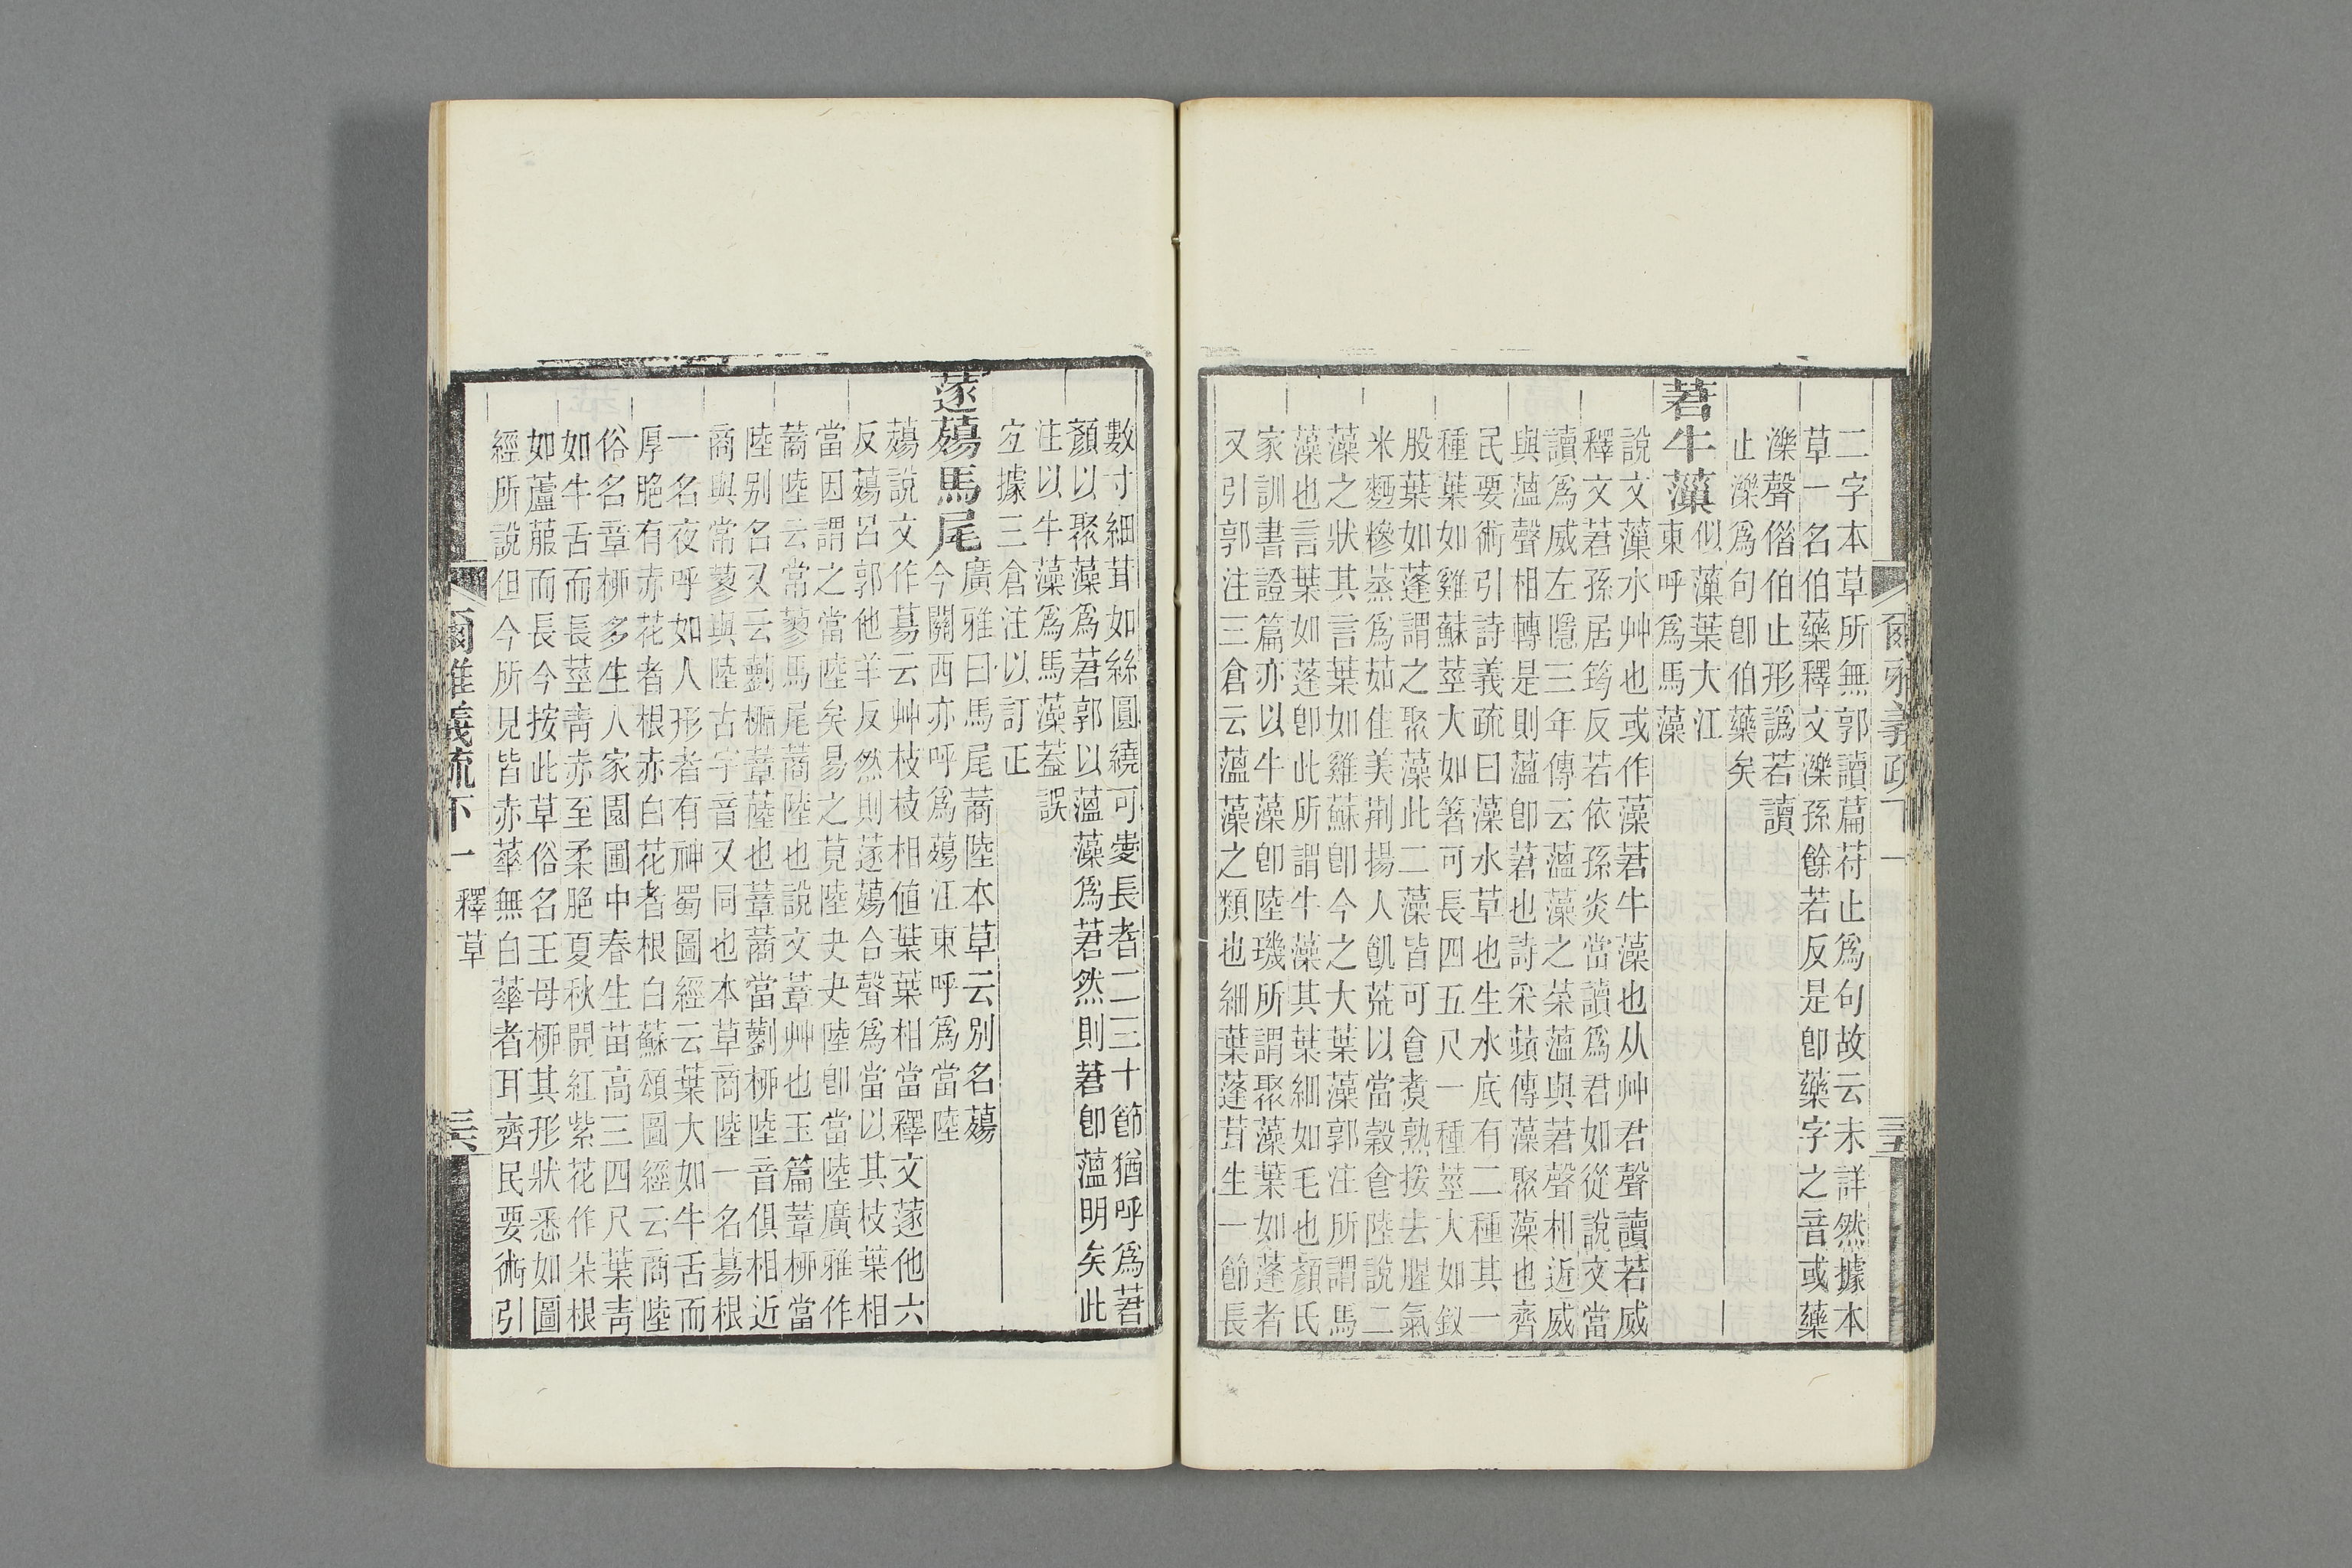 二字本草所無郭讀篇苻止爲句故云未詳然據本
草一名伯藥釋文濼孫餘若反是卽藥字之音或藥
濼聲偕伯止形譌若讀
止濼爲句卽伯藥矣
莙牛藻似藻葉大江
東呼爲馬藻
說文藻水艸也或作藻莙牛藻也从艸君聲讀若威
釋文莙孫居筠反若依孫炎當讀爲君如從說文當
讀爲威左隱三年傳云薀藻之菜薀與莙聲相近威
與薀聲相轉是則薀卽莙也詩采蘋傳藻聚藻也齊
民要術引詩義疏曰藻水草也生水底有二種其一
種葉如雞蘇莖大如箸可長四五尺一種莖大如釵
股葉如蓬謂之聚藻此二藻皆可食煑熟挼去腥氣
米麪糝蒸爲茹佳美荆揚人飢荒以當穀食陸說二
藻之狀其言葉如雞蘇卽今之大葉藻郭注所謂馬
藻也言葉如蓬卽此所謂牛藻其葉細如毛也顏氏
家訓書證篇亦以牛藻卽陸璣所謂聚藻葉如蓬者
又引郭注三倉云薀藻之類也細葉蓬茸生一節長
爾雅義疏下一
三五
數寸細茸如絲圓繞可愛長者二三十節猶呼爲莙
顏以聚藻爲莙郭以薀藻爲莙然則莙卽薀明矣此
注以牛藻爲馬藻葢誤
宐據三倉注以訂正
蓫薚馬尾廣雅曰馬尾蔏陸本草云别名薚
今關西亦呼爲薚江東呼爲當陸
薚說文作募云艸枝枝相値葉葉相當釋文蓫他六
反薚呂郭他羊反然則蓫薚合聲爲當以其枝葉相
當因謂之當陸矣易之莧陸夬夬陸卽當陸廣雅作
蔏陸云常蓼馬尾蔏陸也說文葦艸也玉篇葦柳當
陸别名又云蘮櫤葦蘴也葦蔏當蘮柳陸音俱相近
商與常蓼與陸古字音又同也本草商陸一名募根
一名夜呼如人形者有神蜀圖經云葉大如牛舌而
厚脆有赤花者根赤白花者根白蘇頌圖經云商陸
俗名章柳多生人家園圃中春生苗高三四尺葉靑
如牛舌而長莖靑赤至柔脆夏秋開紅紫花作朵根
如蘆菔而長今按此草俗名王母柳其形狀悉如圖
經所說但今所見皆赤華無白華者耳齊民要術引
爾雅義疏下一 釋草
三六